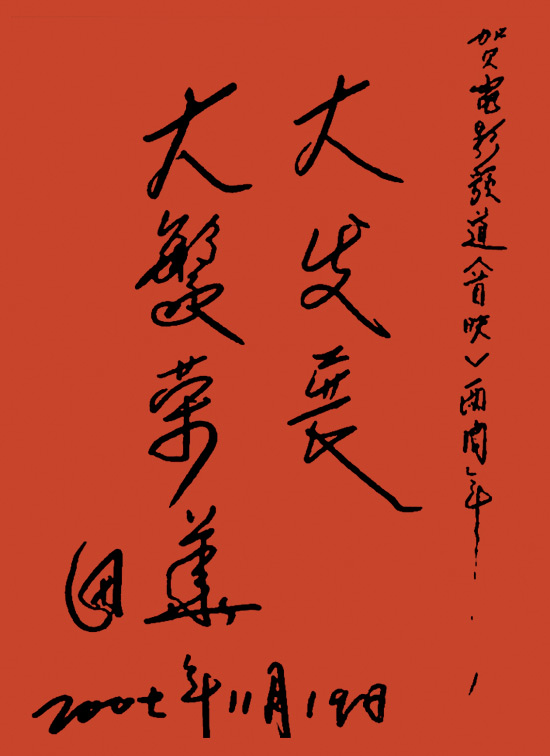 贺電影频道《首映》两周年!
大发展
大繁荣
田華
2007年11月19日